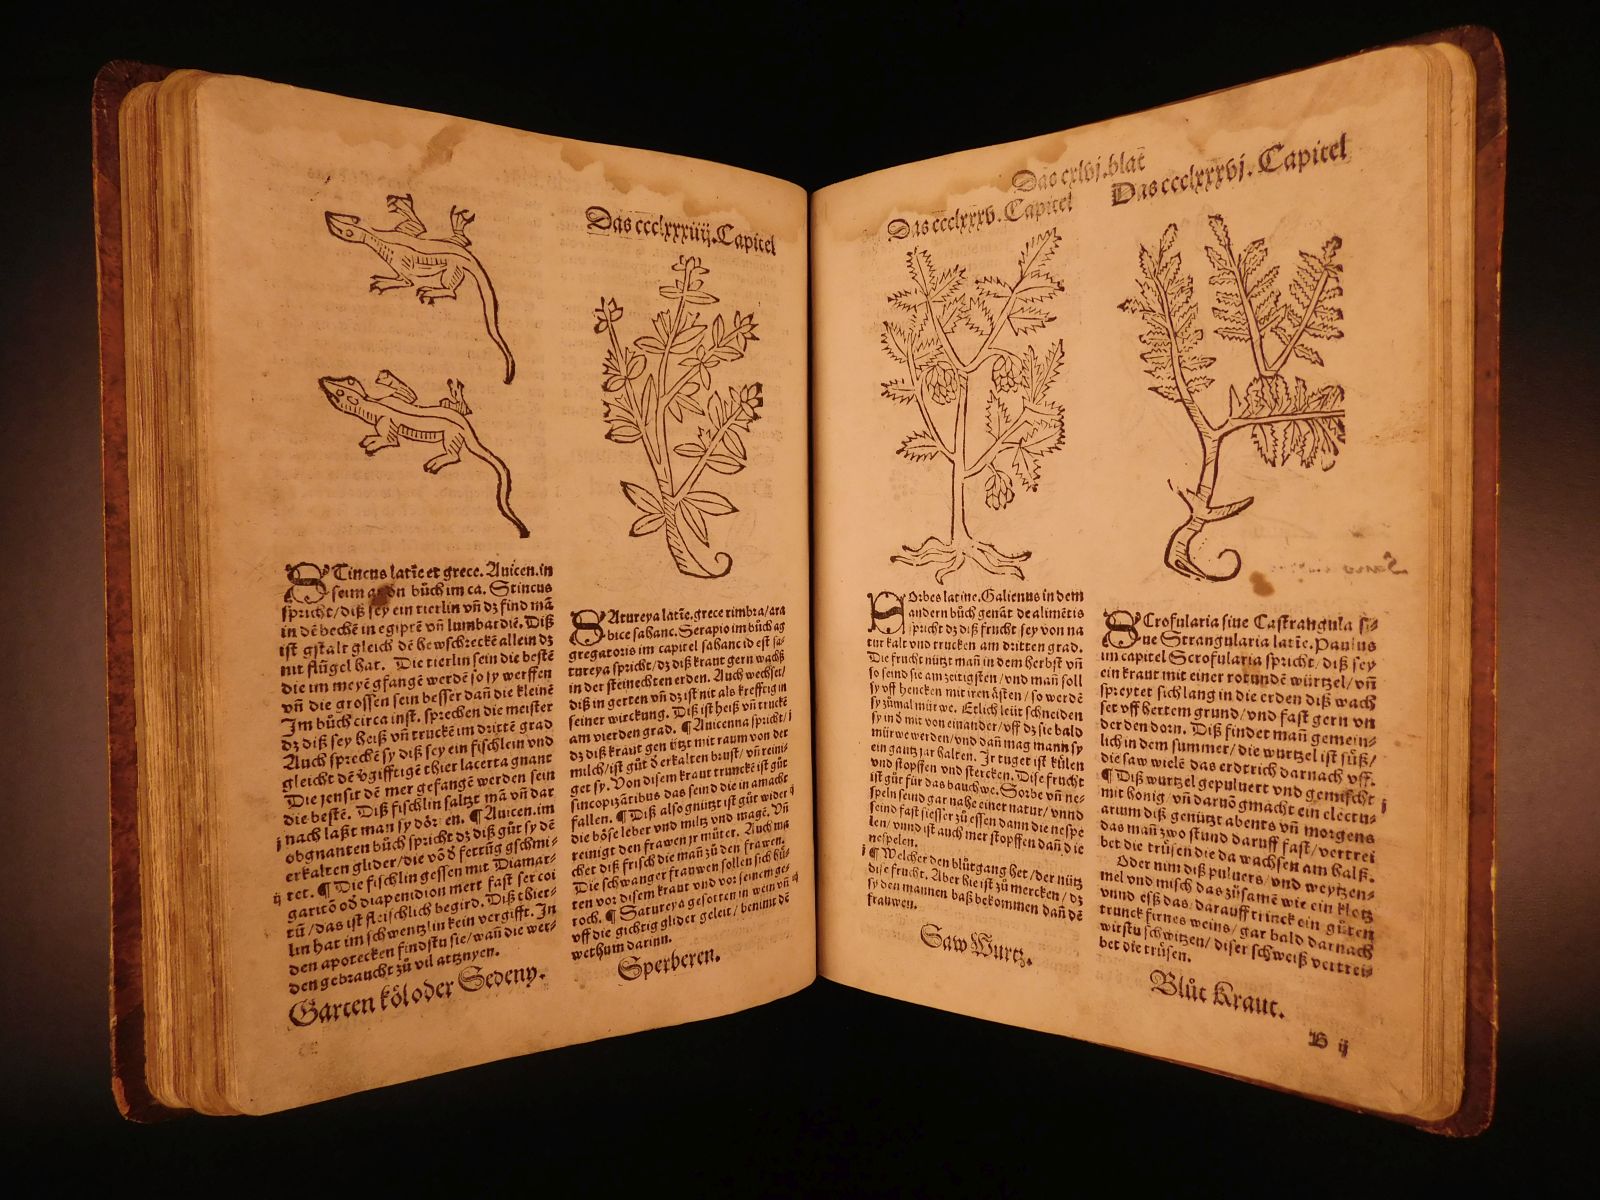 STincus latīe et grece. Auicen. in
seim andn bůch im ca. Stincus
spricht/diß sey ein tierlin vñ dz find mā
in dē bechē in egiptē vñ lumbat diē. Diß
ist gstalt gleich dē hewschreckē allein dz
nit flügel hat. Die tierlin sein die bestē
die im meyē gfangē werdē so sy werffen
vñ die grossen sein besser dañ die kleinē
Im bůch circa inst. sprechen die meister
dz diß sey heiß vñ truckē im drittē grad
Auch sprechē sy diß sey ein fischlein vnd
gleicht dē vgifftigē thier lacerta gnant
Die jensit dē mer gefangē werden sein
die bestē. Diß fischlin saltzt mā vñ dar
j nach laßt man sy dörren. ¶ Auicen. im
obgnanten bůch spricht dz diß gůt sy dē
erkalten glider/die võ d fettūg gschmi-
ij ret. ¶ Die fischlin gessen mit Diamar-
garitō od diapenidion mert fast ser coi
tū/das ist fleischlich begird. Diß thier-
lin hat im schwentzlin kein vergifft. In
den apotecken findstu sie/wañ die wer-
den gebraucht zů vil artznyen.
Garten köl oder Sedeny.
Das ccclxxxiiij. Capitel
SAtureya latīe. grece timbra/ara
bice sahane. Serapio im bůch ag
gregatoris im capitel sahanc id est sa-
tureya spricht/dz diß kraut gern wachß
in der steinechten erden. Auch wechset/
diß in gerten vñ dz ist nit als krefftig in
seiner wirckung. Diß ist heiß vñ truckē
am vierden grad. ¶ Auicenna spricht/ j
dz diß kraut genützt mit raum von der
milch/ist gůt d erkalten brust/vñ reini-
get sy. Von disem kraut trunckē ist gůt
sincopizātibus das seind die in amacht
fallen. ¶ Diß also gnützt ist gůt wider ij
die böse leber vnd miltz vnd magē. Vñ
reinigt den frawen jr můter. Auch ma
chet diß frisch die mañ zů den frawen.
Die schwanger frawen sollen sich hü-
ten vor disem kraut vnd vor seinem ge-
roch. ¶ Satureya gesotten in wein vñ iij
vff die gichtig glider geleit/benimt dē
wethum darinn.
Sperberen.
Das cxlvj. blat
Das ccclxxxv. Capitel
SOrbes latine. Galienus in dem
andern bůch genāt de alimētis
spricht dz diß frucht sey von na
tur kalt vnd trucken am dritten grad.
Die frucht nützt mañ in dem herbst vñ
so seind sie am zeitigsten/vnd mañ soll
sy vff hencken mit iren ästen/so werdē
sy zůmal mürwe. Etlich leüt schneiden
sy ind mit von einander/vff dz sie bald
mürwe werden/vnd dañ mag mann sy
ein gantz jar halten. Ir tuget ist külen
vnd stopffen vnd stercken. Dise frucht
ist gůt für das bauchwe. Sorbe vñ ne-
speln seind gar nahe einer natur/vnnd
seind fast siesser zů essen dann die nespe
len/vnnd ist auch mer stopffen dañ die
nespelen.
j ¶ Welcher den blůtgang het/der nütz
dise frucht. Aber hie ist zů mercken/dz
sy den mannen baß bekommen dañ dē
frauwen.
Saw Wurtz.
Das ccclxxxvj. Capitel
SCrofularia siue Castrangula si-
ue Strangularia latīe. Paulus
im capitel Scrofularia spricht/diß sey
ein kraut mit einer rotundē würtzel/vñ
spreytet sich lang in die erden diß wach
set vff hertem grund/vnd fast gern vn
der den dorn. Diß findet mañ gemein-
lich in dem summer/die wurtzel ist süß/
die saw wielē das erdtrich darnach vff.
¶ Diß wurtzel gepuluert vnd gemischt j
mit honig/vñ darvō gmacht ein electu-
arium diß genützt abents vñ morgens
das mañ zwo stund daruff fast/vertrei
bet die trüsen die da wachsen am halß.
Oder nim diß puluers/vnd weytzen-
mel vnd misch das zůsamē wie ein klotz
vnnd essß das/darauff trinck ein gůten
trunck firnes weins/gar bald darnach
wirstu schwitzen/diser schweiß vertrei-
bet die trüsen.
Blůt Kraut.
B ij